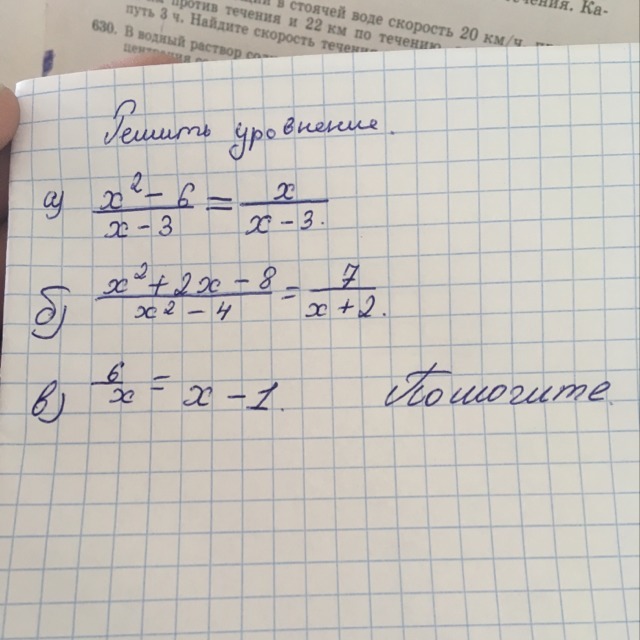 в стоячей воде скорость 20 км/ч, 
против течения и 22 км по течению,
путь 3 ч. Найдите скорость течения
чения. Ка-
630. В водный раствор
Решить уровнение.
а) x² - 6 / x - 3 = x / x - 3.
б) x² + 2x - 8 / x² - 4 = 7 / x + 2.
в) 6 / x = x - 1.
Помогите.